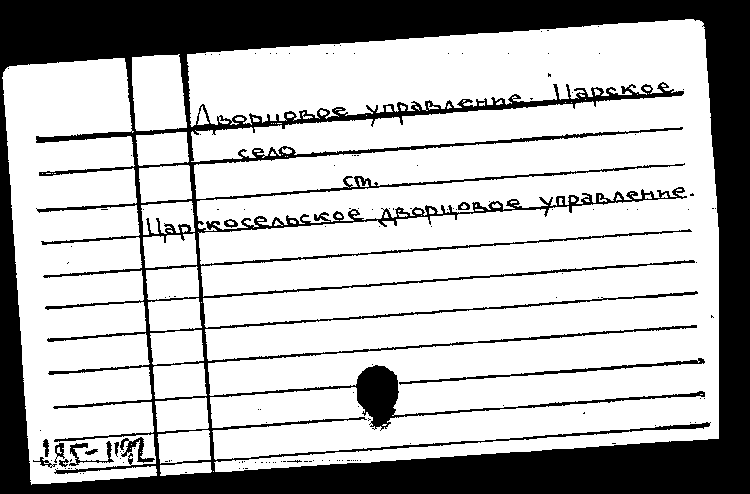 Дворцовое управление. Царское
село
см.
Царскосельское дворцовое управление.